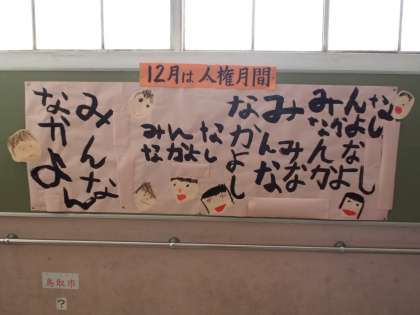 12月は人権月間
みんな
なかよん
みんな
なかよし
みんな
なかよし
みんな
なかよし
みんな
なかよし
鳥取市
?